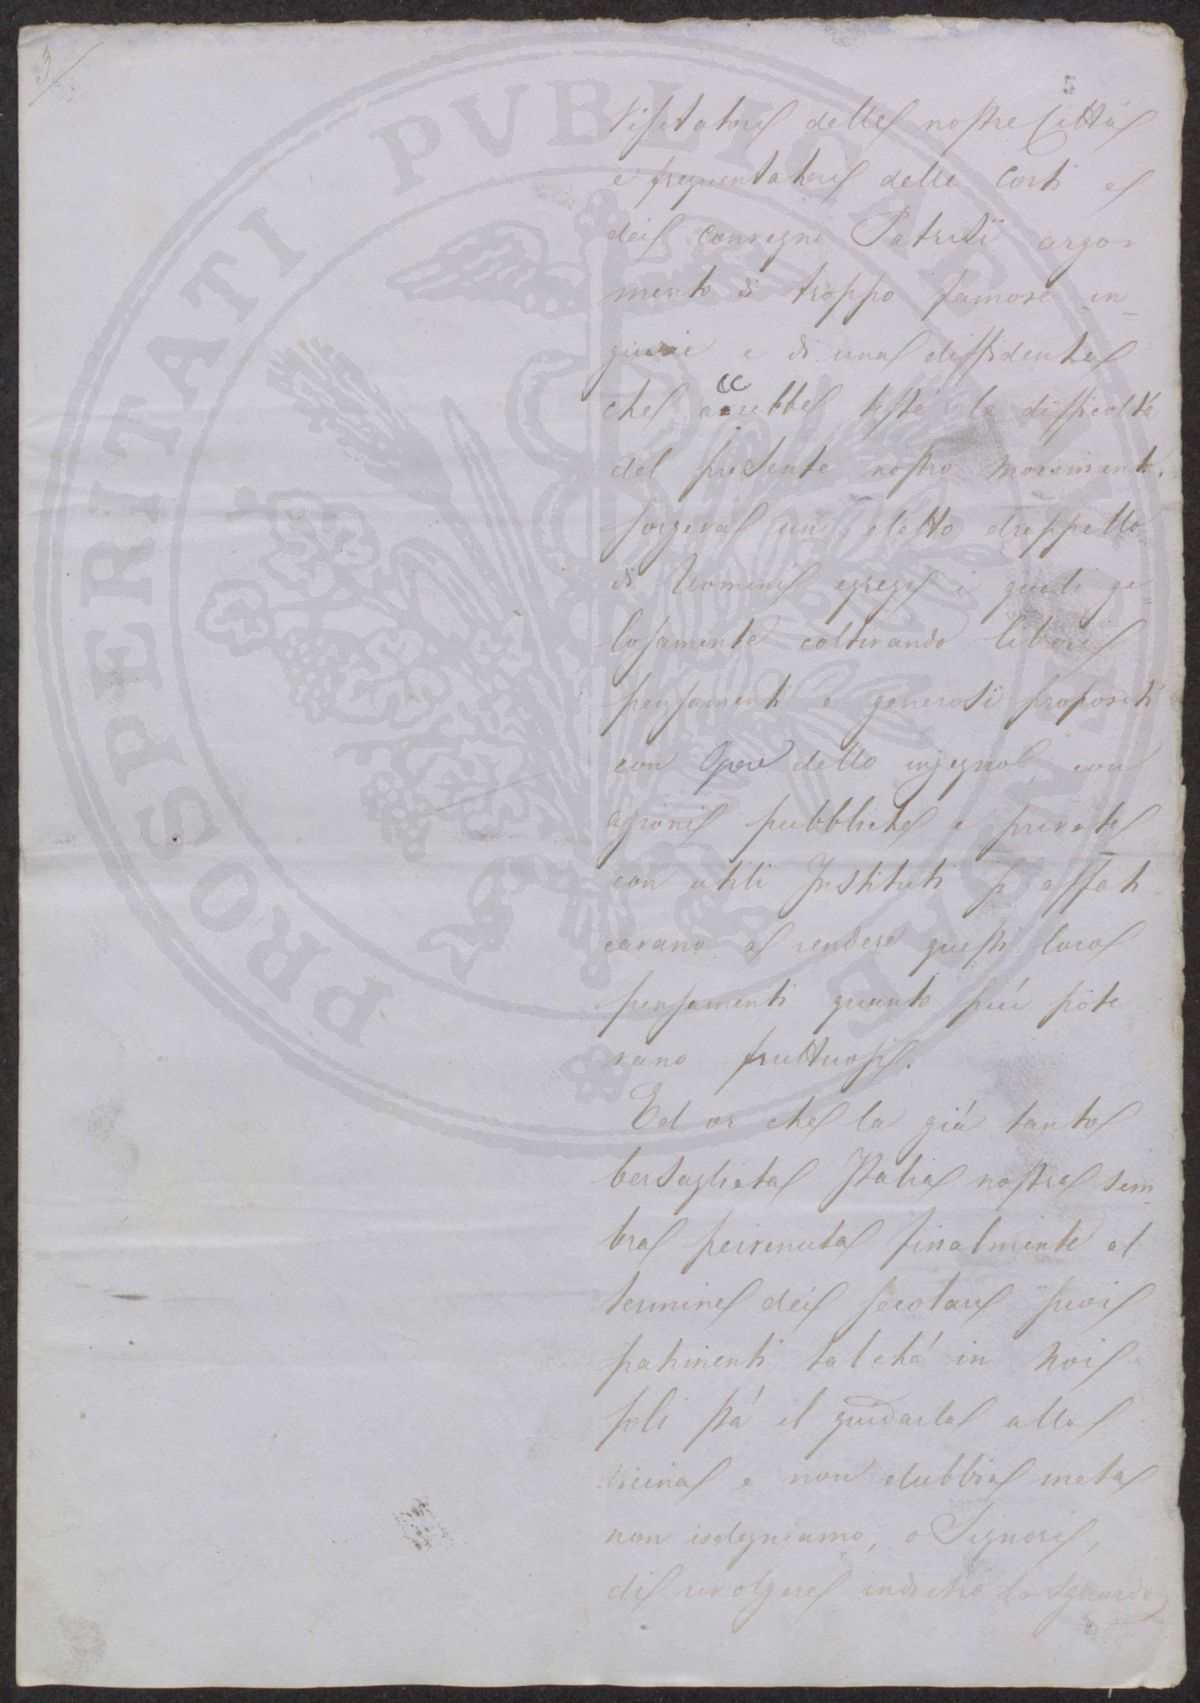 3/
5
PROSPERITATI PVBLICAE AVGENDAE
Visitatori delle nostre Città
e frequentatori delle Corti e
dei Convegni Patrizii argo-
mento di troppo famose in-
giurie e di una diffidenza
che accrebbe testé le difficoltà
del presente nostro movimento.
sorgeva un eletto drappello
di Uomini egregi i quali ge-
losamente coltivando liberi
pensamenti e generosi propositi
con Opere dello ingegno, con
azioni pubbliche e private
con utili Instituti si affati-
cavano a rendere questi loro
pensamenti quanto più pote
vano fruttuosi.
Ed or che la già tanto
bersagliata Italia nostra sem-
bra pervenuta finalmente al
termine dei secolari suoi
patimenti talché in Noi
soli stà il guidarla alla
vicina e non dubbia meta
non isdegniamo, o Signori,
di rivolgere indietro lo sguardo